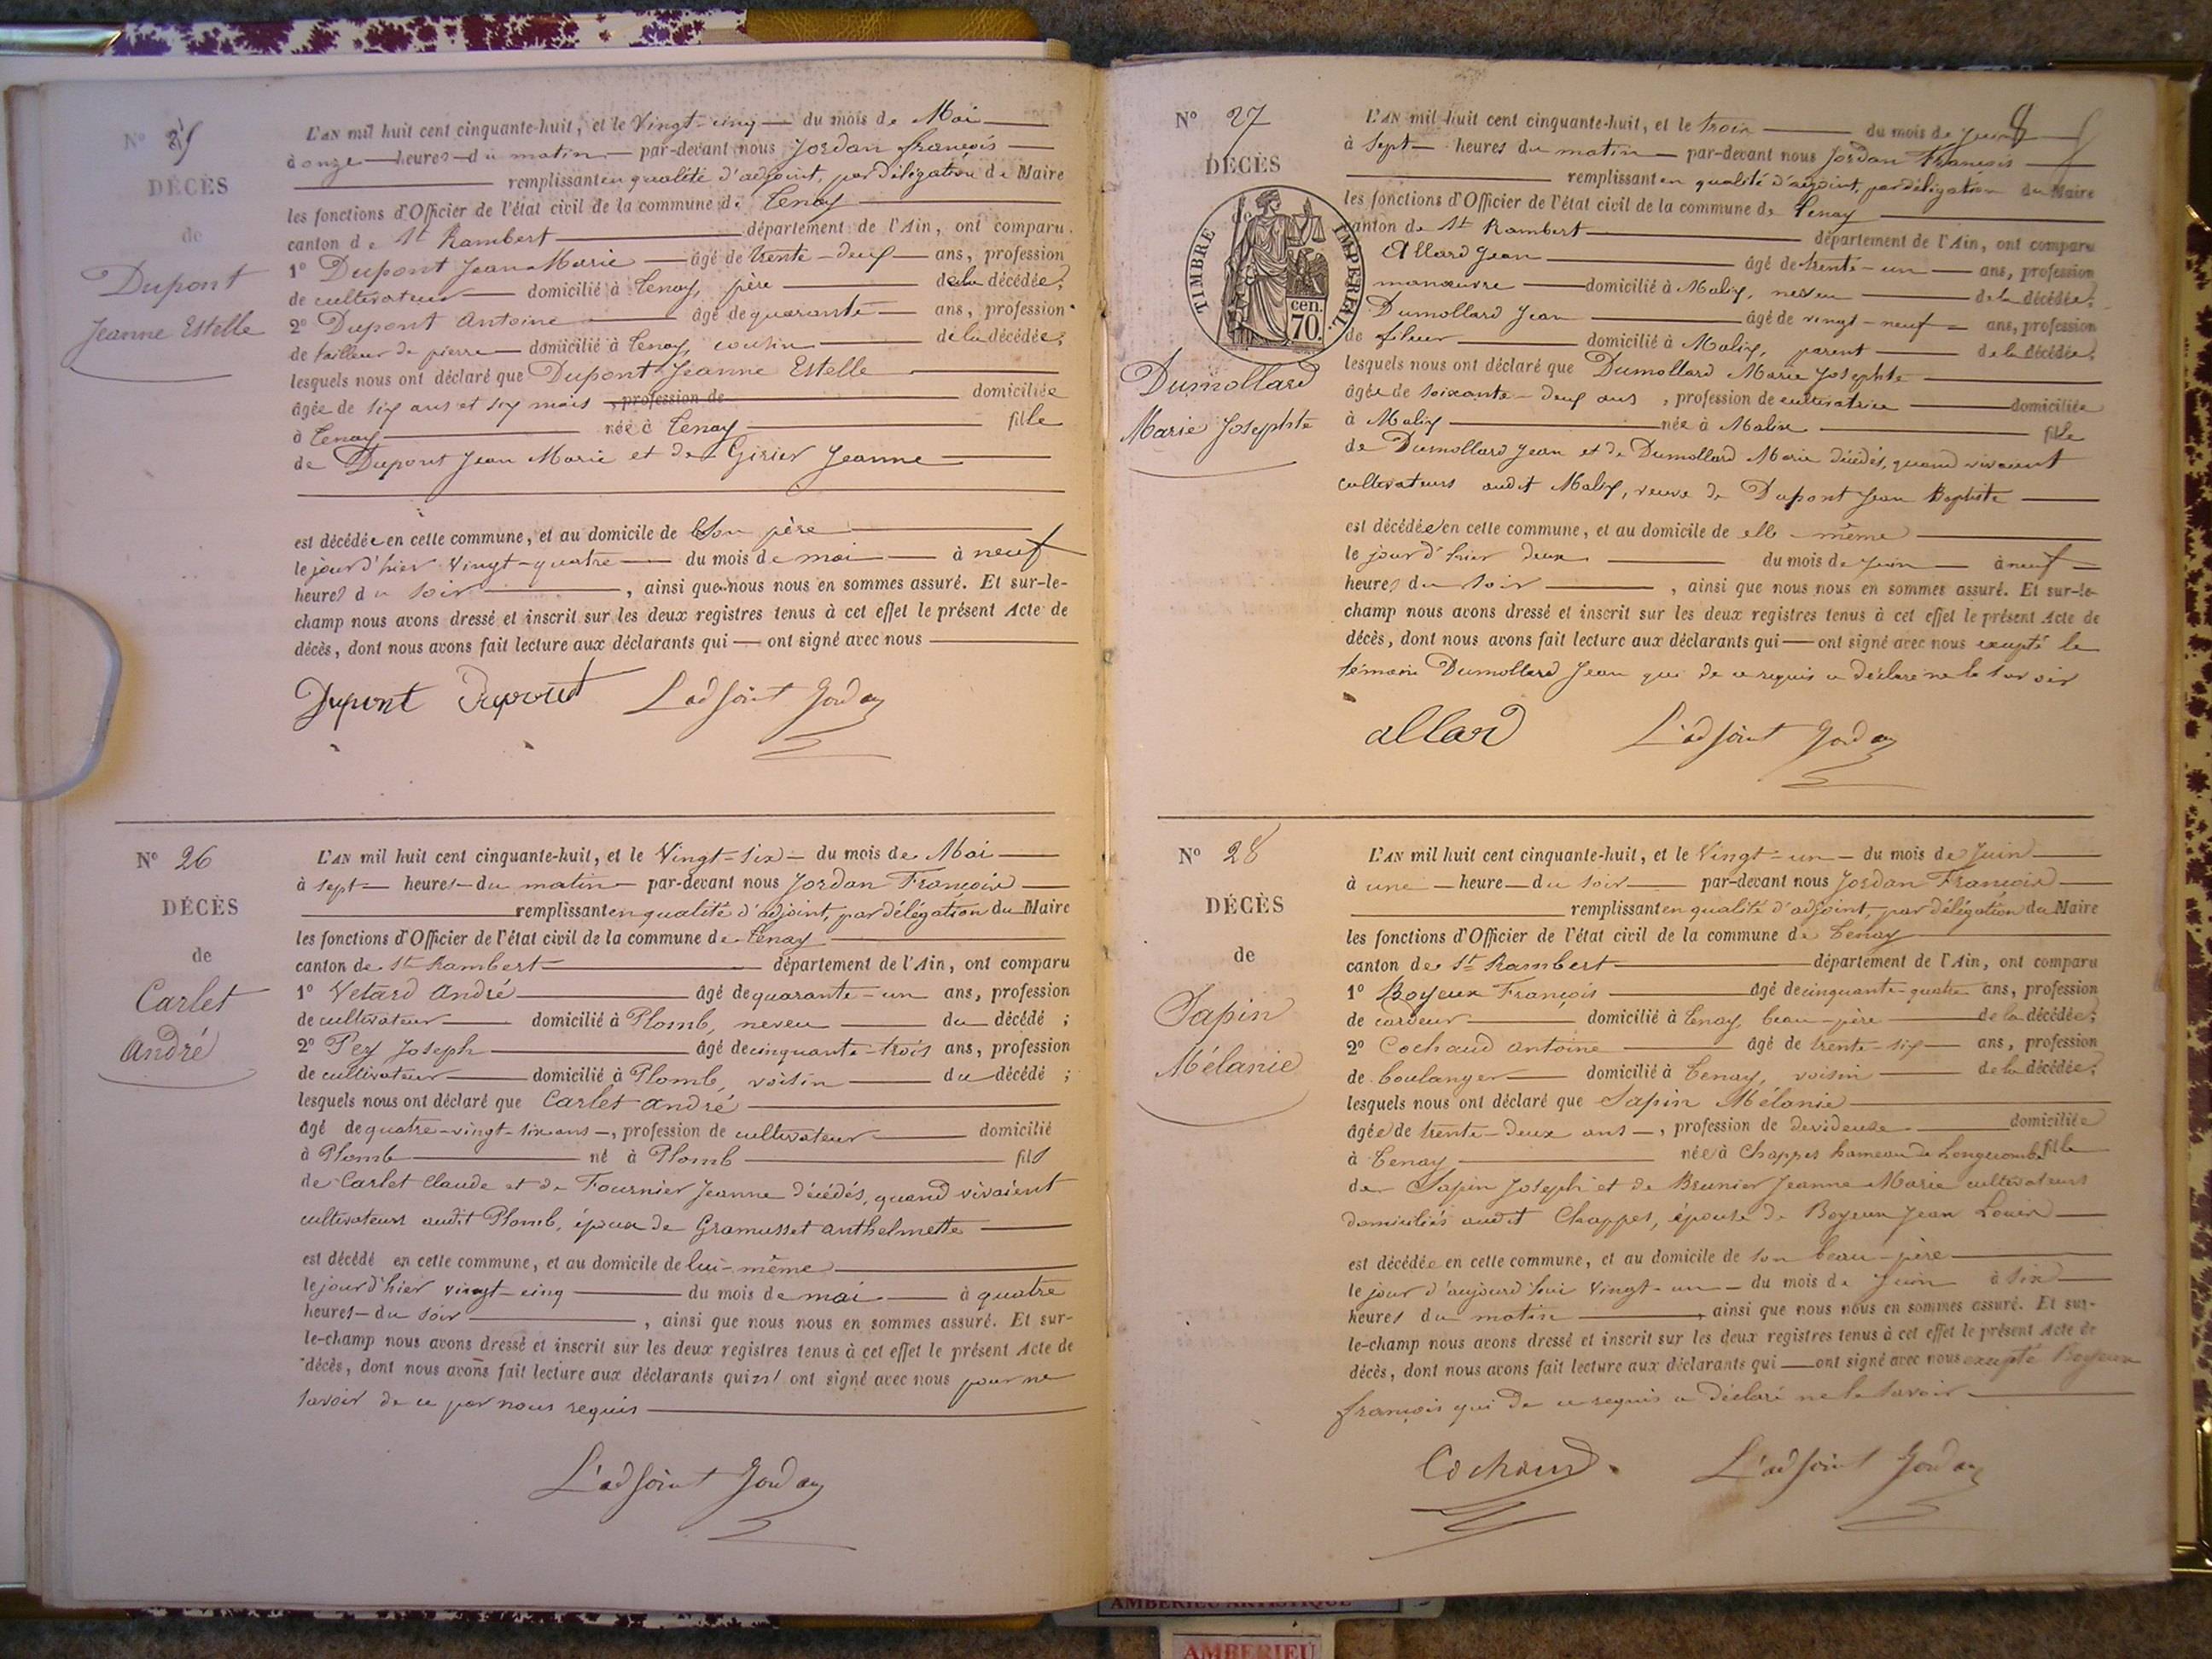 N° 25
DÉCÈS
de
Dupont
Jeanne Estelle
L'AN mil huit cent cinquante-huit, et le Vingt-cinq du mois de Mai
à onze heures du matin par-devant nous Jordan françois
remplissant en qualité d'adjoint, par délégation de Maire
les fonctions d'Officier de l'état civil de la commune de Tenay
canton de St Rambert département de l'Ain, ont comparu
1° Dupont Jean Marie âgé de trente-deux ans, profession
de cultivateur domicilié à Tenay, père de la décédée;
2° Dupont Antoine âgé de quarante ans, profession
de tailleur de pierre domicilié à Tenay, cousin de la décédée;
lesquels nous ont déclaré que Dupont Jeanne Estelle
âgée de six ans et six mois , profession de domiciliée
à Tenay née à Tenay fille
de Dupont Jean Marie et de Girier Jeanne
est décédée en cette commune, et au domicile de son père
le jour d'hier Vingt-quatre du mois de mai à neuf
heures du soir , ainsi que nous nous en sommes assuré. Et sur-le-
champ nous avons dressé et inscrit sur les deux registres tenus à cet effet le présent Acte de
décès, dont nous avons fait lecture aux déclarants qui ont signé avec nous
Dupont Dupont L'adjoint Jordan
N° 26
DÉCÈS
de
Carlet
André
L'AN mil huit cent cinquante-huit, et le Vingt-six du mois de Mai
à sept heures du matin par-devant nous Jordan François
remplissant en qualité d'adjoint, par délégation du Maire
les fonctions d'Officier de l'état civil de la commune de Tenay
canton de St Rambert département de l'Ain, ont comparu
1° Vetard André âgé de quarante-un ans, profession
de cultivateur domicilié à Plomb, neveu du décédé ;
2° Pey Joseph âgé de cinquante-trois ans, profession
de cultivateur domicilié à Plomb, voisin du décédé ;
lesquels nous ont déclaré que Carlet André
âgé de quatre-vingt-six ans , profession de cultivateur domicilié
à Plomb né à Plomb fils
de Carlet Claude et de Fournier Jeanne décédés, quand vivaient
cultivateurs audit Plomb, époux de Gramusset anthelmette
est décédé en cette commune, et au domicile de lui-même
le jour d'hier vingt-cinq du mois de mai à quatre
heures du soir , ainsi que nous nous en sommes assuré. Et sur-
le-champ nous avons dressé et inscrit sur les deux registres tenus à cet effet le présent Acte de
décès, dont nous avons fait lecture aux déclarants qui n'ont signé avec nous pour ne
savoir de ce par nous requis
L'adjoint Jordan
N° 27
DÉCÈS
de
TIMBRE IMPÉRIAL.
cen.
70.
Dumollard
Marie Josephte
L'AN mil huit cent cinquante-huit, et le trois du mois de Juin
à Sept heures du matin par-devant nous Jordan François
remplissant en qualité d'adjoint, par délégation du Maire
les fonctions d'Officier de l'état civil de la commune de Tenay
canton de St Rambert département de l'Ain, ont comparu
Allard Jean âgé de trente-un ans, profession
manœuvre domicilié à Malix, neveu de la décédée;
Dumollard Jean âgé de vingt-neuf ans, profession
de fileur domicilié à Malix, parent de la décédée;
lesquels nous ont déclaré que Dumollard Marie Josephte
âgée de soixante-deux ans , profession de cultivatrice domiciliée
à Malix née à Malix fille
de Dumollard Jean et de Dumollard Marie décédés, quand vivaient
cultivateurs audit Malix, veuve de Dupont Jean Baptiste
est décédée en cette commune, et au domicile de elle-même
le jour d'hier deux du mois de Juin à neuf
heures du soir , ainsi que nous nous en sommes assuré. Et sur-le-
champ nous avons dressé et inscrit sur les deux registres tenus à cet effet le présent Acte de
décès, dont nous avons fait lecture aux déclarants qui ont signé avec nous excepté le
témoin Dumollard Jean qui de ce requis a déclaré ne le savoir
allard L'adjoint Jordan
N° 28
DÉCÈS
de
Sapin
Mélanie
L'AN mil huit cent cinquante-huit, et le Vingt-un du mois de Juin
à une heure du soir par-devant nous Jordan François
remplissant en qualité d'adjoint, par délégation du Maire
les fonctions d'Officier de l'état civil de la commune de Tenay
canton de St Rambert département de l'Ain, ont comparu
1° Boyeux François âgé de cinquante-quatre ans, profession
de cardeur domicilié à Tenay, beau-père de la décédée;
2° Cochaud Antoine âgé de trente-six ans, profession
de boulanger domicilié à Tenay, voisin de la décédée;
lesquels nous ont déclaré que Sapin Mélanie
âgée de trente-deux ans , profession de devideuse domiciliée
à Tenay née à Chappes hameau de Longecombe fille
de Sapin Joseph et de Brunier Jeanne Marie cultivateurs
domiciliés audit Chappes, épouse de Boyeux Jean Louis
est décédée en cette commune, et au domicile de son beau-père
le jour d'aujourd'hui Vingt-un du mois de Juin à six
heures du matin , ainsi que nous nous en sommes assuré. Et sur-
le-champ nous avons dressé et inscrit sur les deux registres tenus à cet effet le présent Acte de
décès, dont nous avons fait lecture aux déclarants qui ont signé avec nous excepté Boyeux
françois qui de ce requis a déclaré ne le savoir
Cochaud L'adjoint Jordan
AMBERIEU ARTISTIQUE
AMBERIEU